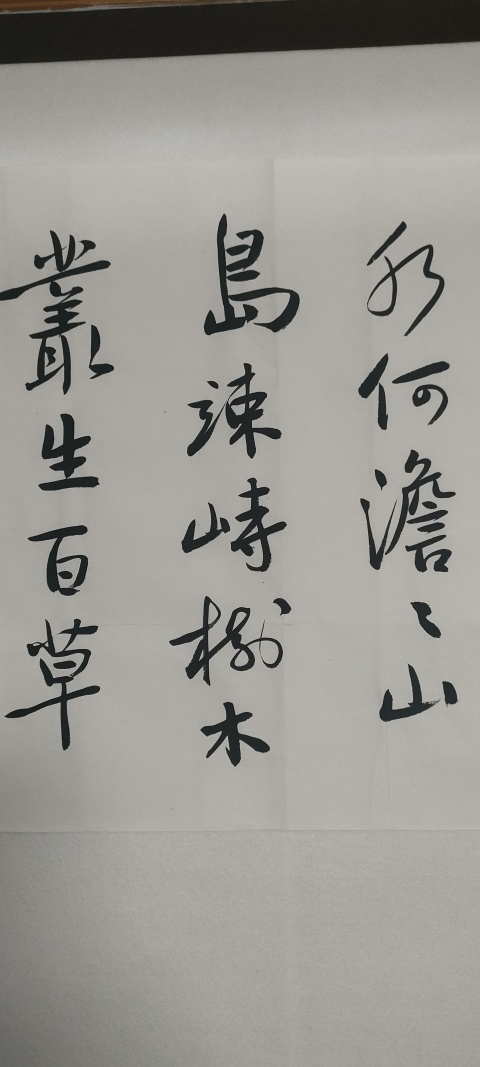 水何澹〻山
島竦峙樹木
叢生百草